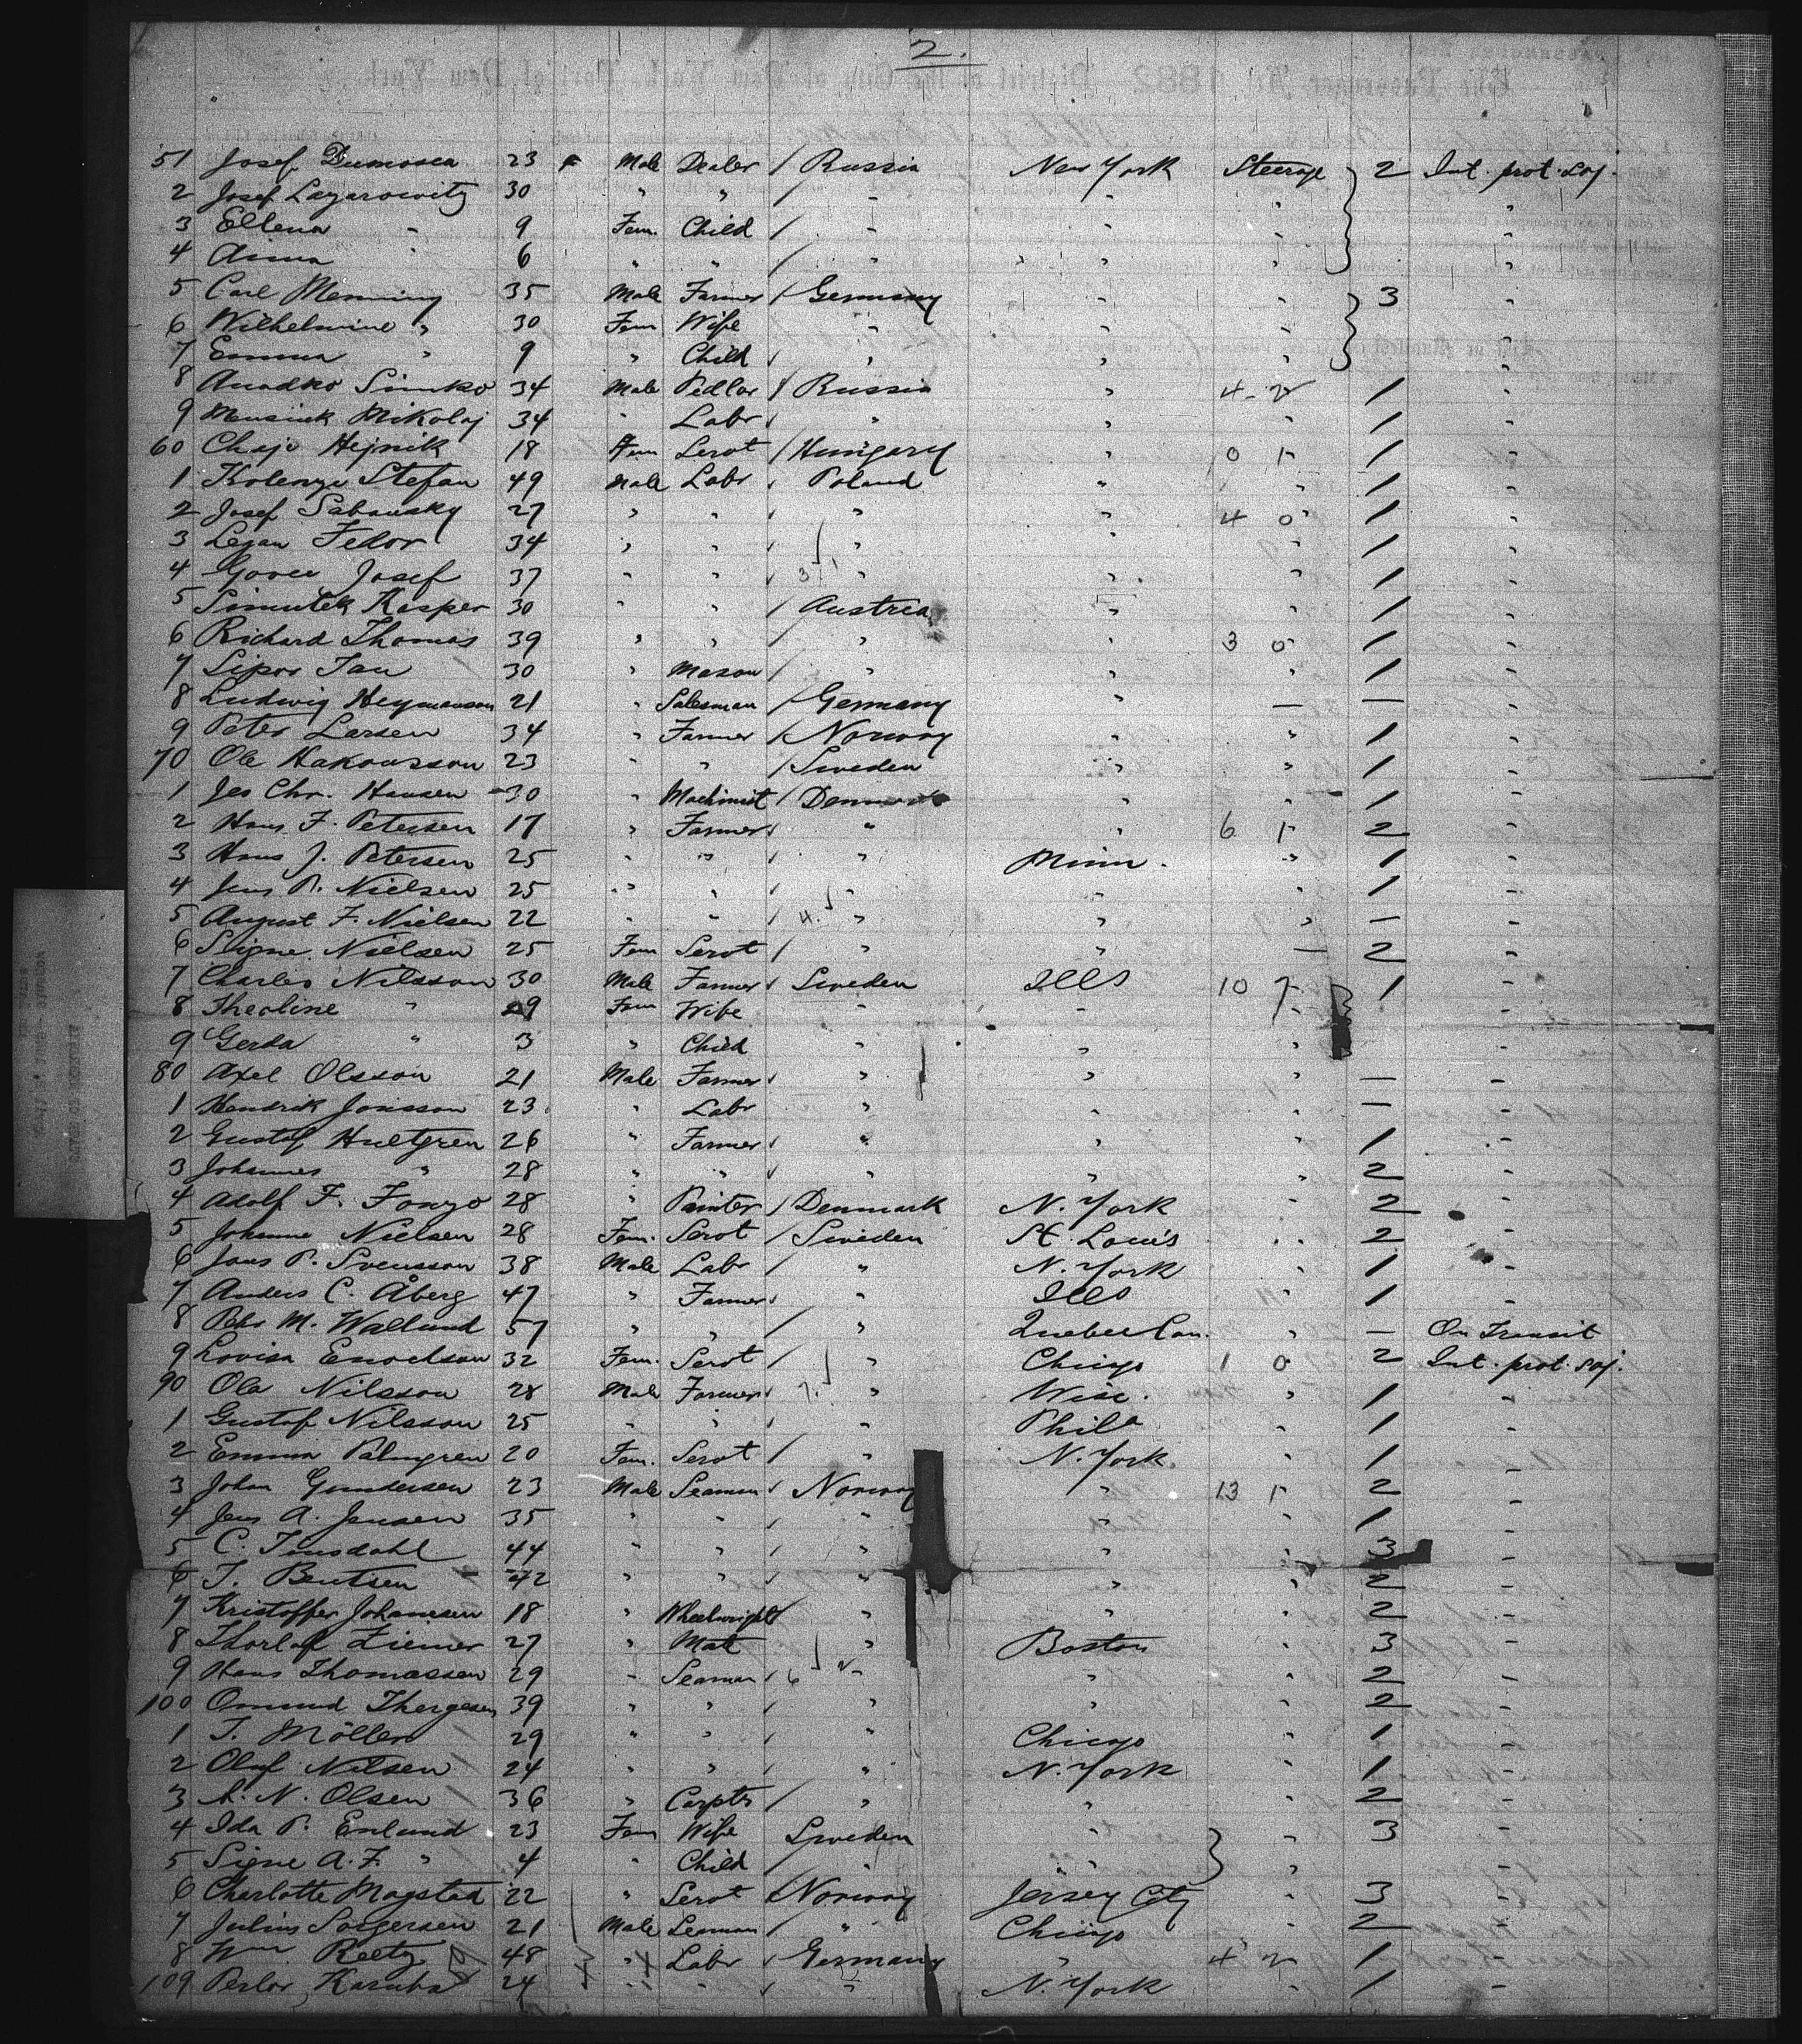 2.
51 Josef Dumosca 23 Male Dealer / Russia New York Steerage 2 Int. prot. soj.
2 Josef Lazarowitz 30 " " / " " " "
3 Ellena " 9 Fem. Child / " " " "
4 Anna " 6 " " / " " " "
5 Carl Menning 35 Male Farmer / Germany " " 3 "
6 Wilhelmine " 30 Fem Wife " " " "
7 Emma " 9 " Child " " " "
8 Simko 34 Male Pedlar / Russia " 4 - 2 1 "
9 Mikolaj 34 " Labr " " 1 "
60 Hejnik 18 Fem Servt / Hungary " 0 1 - 1 "
1 Stefan 49 Male Labr Poland " " 1 "
2 Josef Sabousky 27 " " " " 4 0 1 "
3 Fedor 34 " " " " " 1 "
4 Josef 37 " " " " " 1 "
5 Kasper 30 " " / Austria " " 1 "
6 Richard Thomas 39 " " / " " 3 0 1 "
7 Lipor Jan 30 " Mason / " " " 1 "
8 Ludwig Heymanson 21 " Salesman / Germany " — — "
9 Peter Larsen 34 " Farmer / Norway " " 1 "
70 Ole Hakonsson 23 " " / Sweden " " 1 "
1 Jes Chr. Hansen 30 " Machinist / Denmark " " 1 "
2 Hans F. Petersen 17 " Farmer " " 6 1 - 2 "
3 Hans J. Petersen 25 " " " Minn. " 1 "
4 Jens P. Nielsen 25 " " " " " 1 "
5 August F. Nielsen 22 " " / 4. " " " — "
6 Signe Nielsen 25 Fem Servt / " " — 2 "
7 Charles Nilsson 30 Male Farmer Sweden Ills 10 7 - 1 "
8 Theoline " 29 Fem Wife " " " "
9 Gerda " 3 " Child " " " "
80 Axel Olsson 21 Male Farmer " " " — "
1 Hendrik Jonsson 23 " Labr " " " — "
2 Gustaf Hultgren 26 " Farmer " " " 1 "
3 Johannes " 28 " " " " " 2 "
4 Adolf F. 28 " Painter / Denmark N. York " 2 "
5 Johanne Nielsen 28 Fem. Servt / Sweden St. Louis " 2 "
6 Jons P. Svensson 38 Male Labr / " N. York " 1 "
7 Anders C. Åberg 47 " Farmer " Ills " 1 "
8 Pehr M. Wallund 57 " " / " Quebec Can. " — On Transit
9 Lovisa Enockson 32 Fem. Servt / " Chicago 1 0 2 Int. prot. soj.
90 Ola Nilsson 28 Male Farmer 7. " Wisc. " 1 "
1 Gustaf Nilsson 25 " " " Phila " 1 "
2 Emma Palmgren 20 Fem. Servt / " N. York " 1 "
3 Johan Gundersen 23 Male Seaman Norway " 13 1 - 2 "
4 Jens A. Jensen 35 " " " " " 1 "
5 C. Tonsdahl 44 " " " " " 3 "
6 T. Bentsen 42 " " " " " 2 "
7 Kristoffer Johannesen 18 " Wheelwright / " " " 2 "
8 Thorlaf Ziemer 27 " Mate " Boston " 3 "
9 Hans Thomassen 29 " Seaman 6 " " " 2 "
100 Ommund Thergesen 39 " " / " " " 2 "
1 T. Möller 29 " " / " Chicago " 1 "
2 Oluf Nilsen 24 " " " N. York " 1 "
3 A. N. Olsen 36 " Carptr / " " " 2 "
4 Ida P. Enlund 23 Fem Wife Sweden " " 3 "
5 Signe A. F. " 4 " Child " " " "
6 Charlotte Magstad 22 " Servt / Norway Jersey City " 3 "
7 Julius Sorgersen 21 Male Seaman / " Chicago " 2 "
8 Wm Reetz 48 " Labr Germany " 4 2 - 1 "
109 Perlov Karuba 24 " " " N. York " 1 "